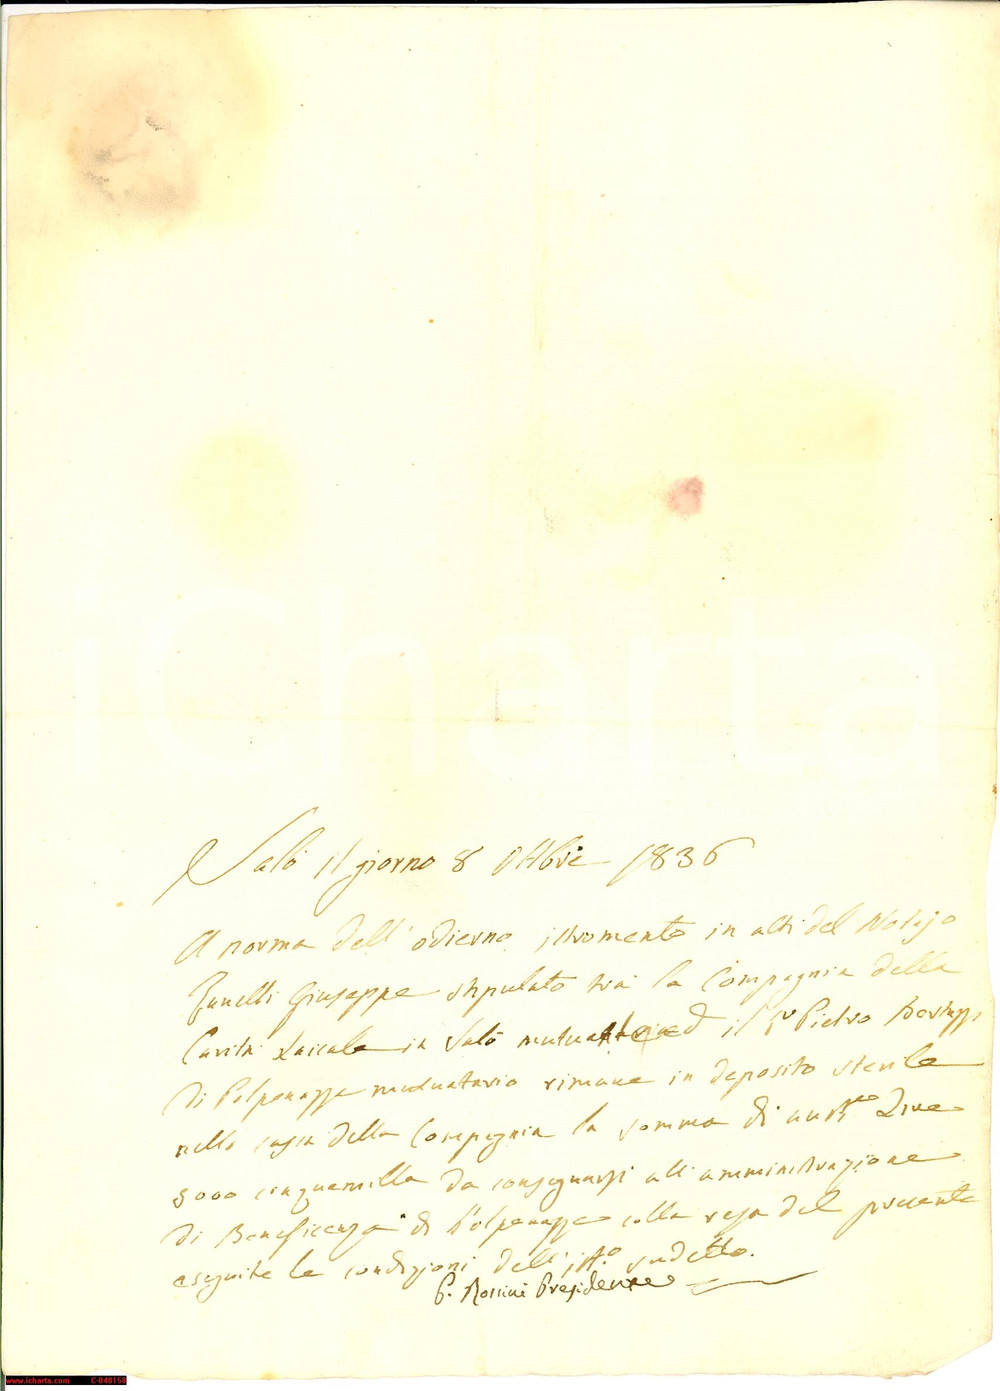 iCharta
Salò il giorno 8 Ottbre 1836
A norma dell' odierno istromento in atti del Notajo
Zanelli Giuseppe stipulato trà la Compagnia della
Carità Laicale in Salò mutuante ed il Sr Pietro
di Polpenazze mutuatario rimane in deposito sterile
nella cassa della Compagnia la somma di austre Lire
5000 cinquemilla da consegnarsi all' amministrazione
di Beneficenza di Polpenazze colla resa del presente
eseguite le condizioni dell' isto sudetto.
P. Rossini Presidente
www.icharta.com C-048158